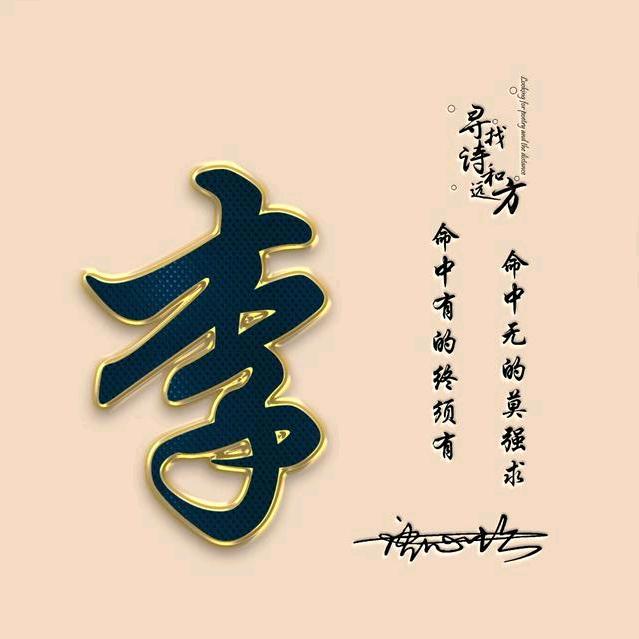 李
寻找
诗和
远方
Looking for poetry and the distance
命中有的终须有
命中无的莫强求